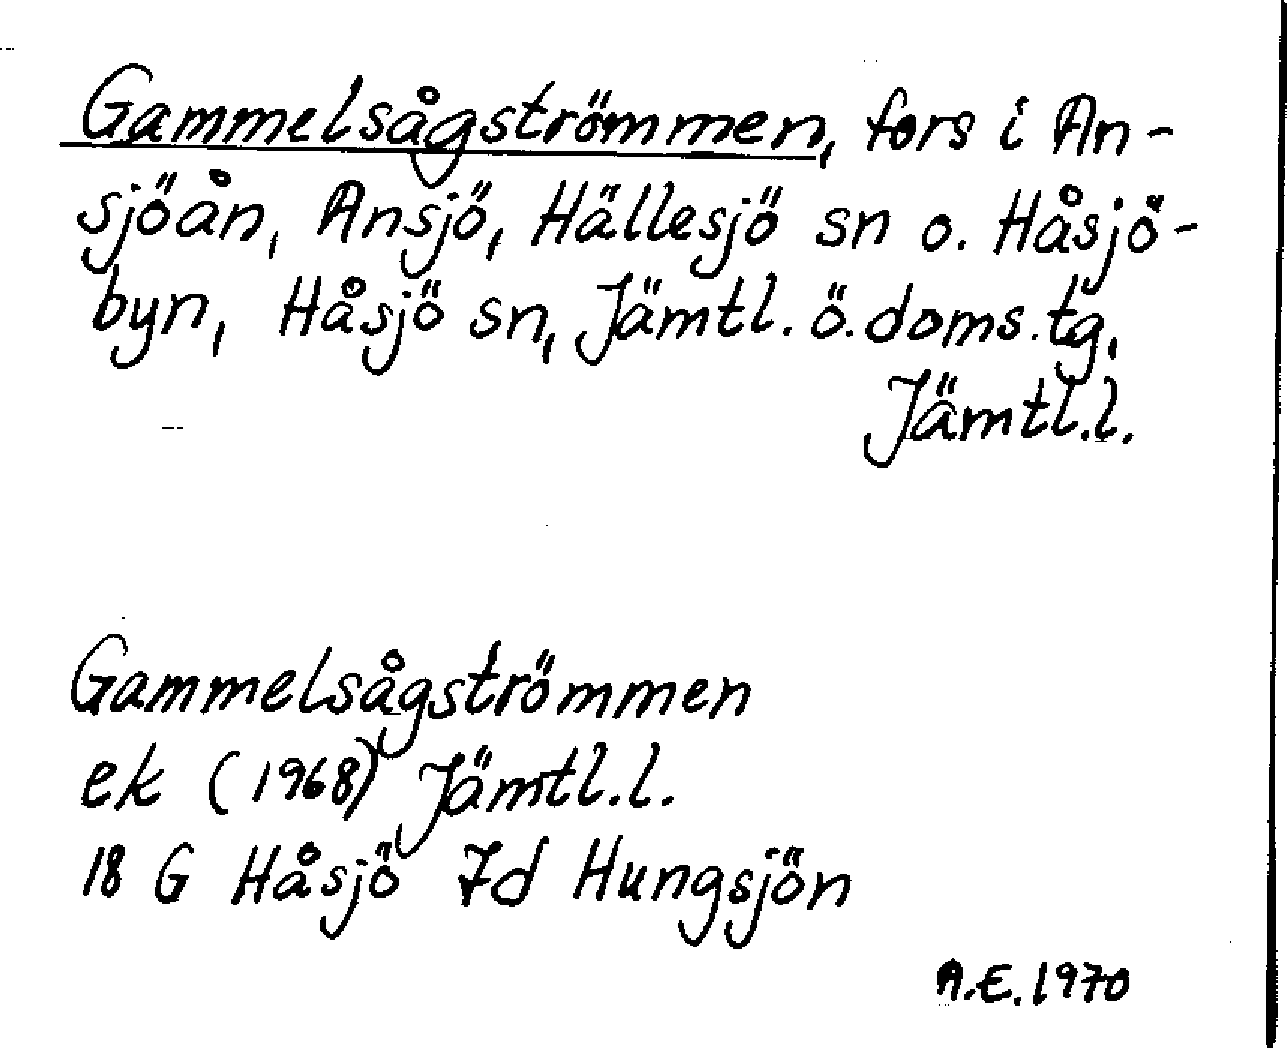 Gammelsågströmmen, fors i An-
sjöån, Ansjö, Hällesjö sn o. Håsjö-
byn, Håsjö sn, Jämtl. ö. doms. tg,
Jämtl.l.
Gammelsågströmmen
ek (1968) Jämtl.l.
18 G Håsjö 7d Hungsjön
A.E. 1970